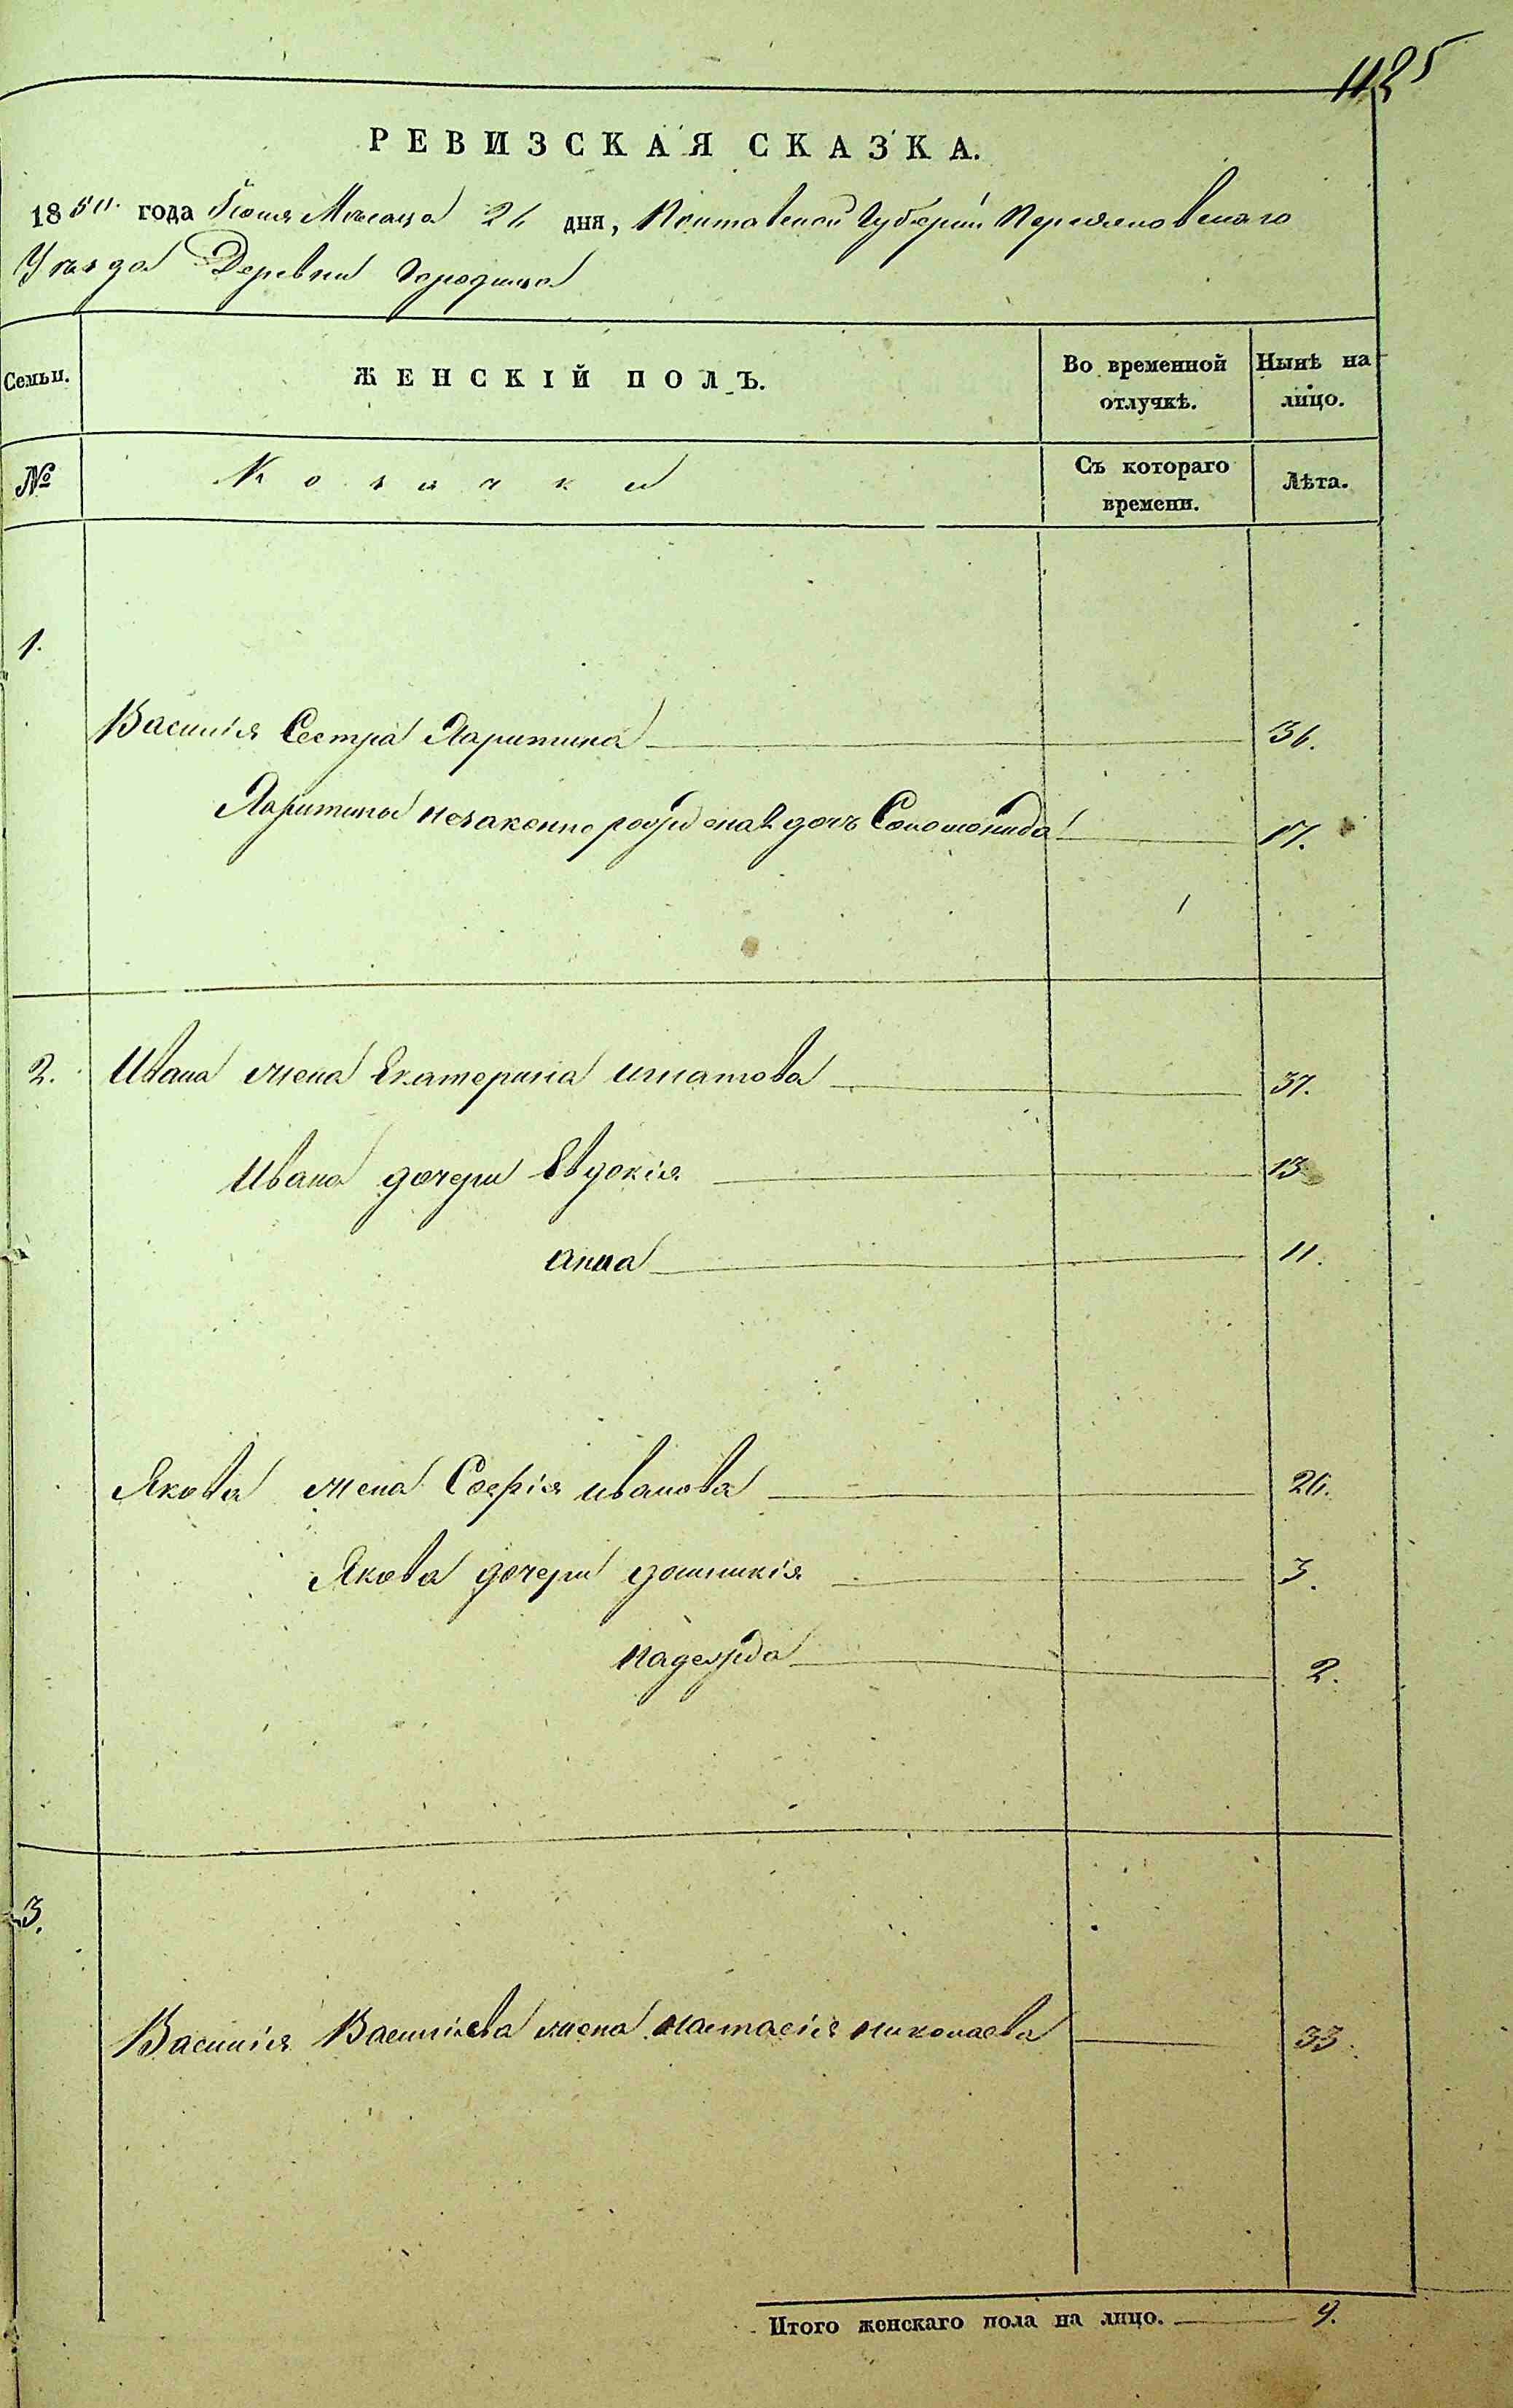 1125
РЕВИЗСКАЯ СКАЗКА.
1850 года Июня Месяца 26 дня, Полтавской Губерніи Переяславскаго
Уезда Деревни Городища
Семьи.
ЖЕНСКІЙ ПОЛЪ.
Во временной отлучкѣ.
Нынѣ на лицо.
№
Козачки
Съ котораго времени.
Лѣта.
1.
Василія Сестра Харитина 36.
Харитины незаконно рожденная дочь Соломонида 17.
2. Ивана жена Екатерина игнатова 37.
Ивана дочери Евдокія 13
анна 11.
Якова жена Софія иванова 26.
Якова дочери домникія 3.
надежда 2.
3.
Василія Василіева жена настасія николаева 33.
Итого женскаго пола на лицо. 9.